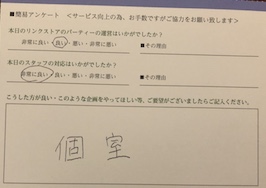 ■簡易アンケート　＜サービス向上の為、お手数ですがご協力をお願い致します＞
本日のリンクストアのパーティーの運営はいかがでしたか？
非常に良い・良い・悪い・非常に悪い　■その理由
本日のスタッフの対応はいかがでしたか？
非常に良い・良い・悪い・非常に悪い　■その理由
こうした方が良い・このような企画をやってほしい等、ご要望がございましたらご記入ください。
個室